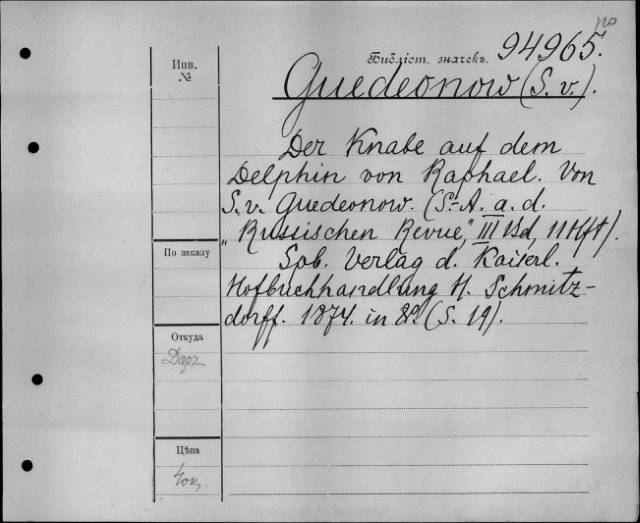 по
Библіот. значекъ. 94965.
Guedeonow (S. v.).
Инв.
№
Der Knabe auf dem
Delphin von Raphael. Von
S. v. Guedeonow. (S.-A. a. d.
„Russischen Revue", III Bd, 11 Hft).
По заказу
Spb. Verlag d. Kaiserl.
Hofbuchhandlung H. Schmitz-
dorff. 1874. in 8º. (S. 19).
Откуда
Даръ
Цѣна